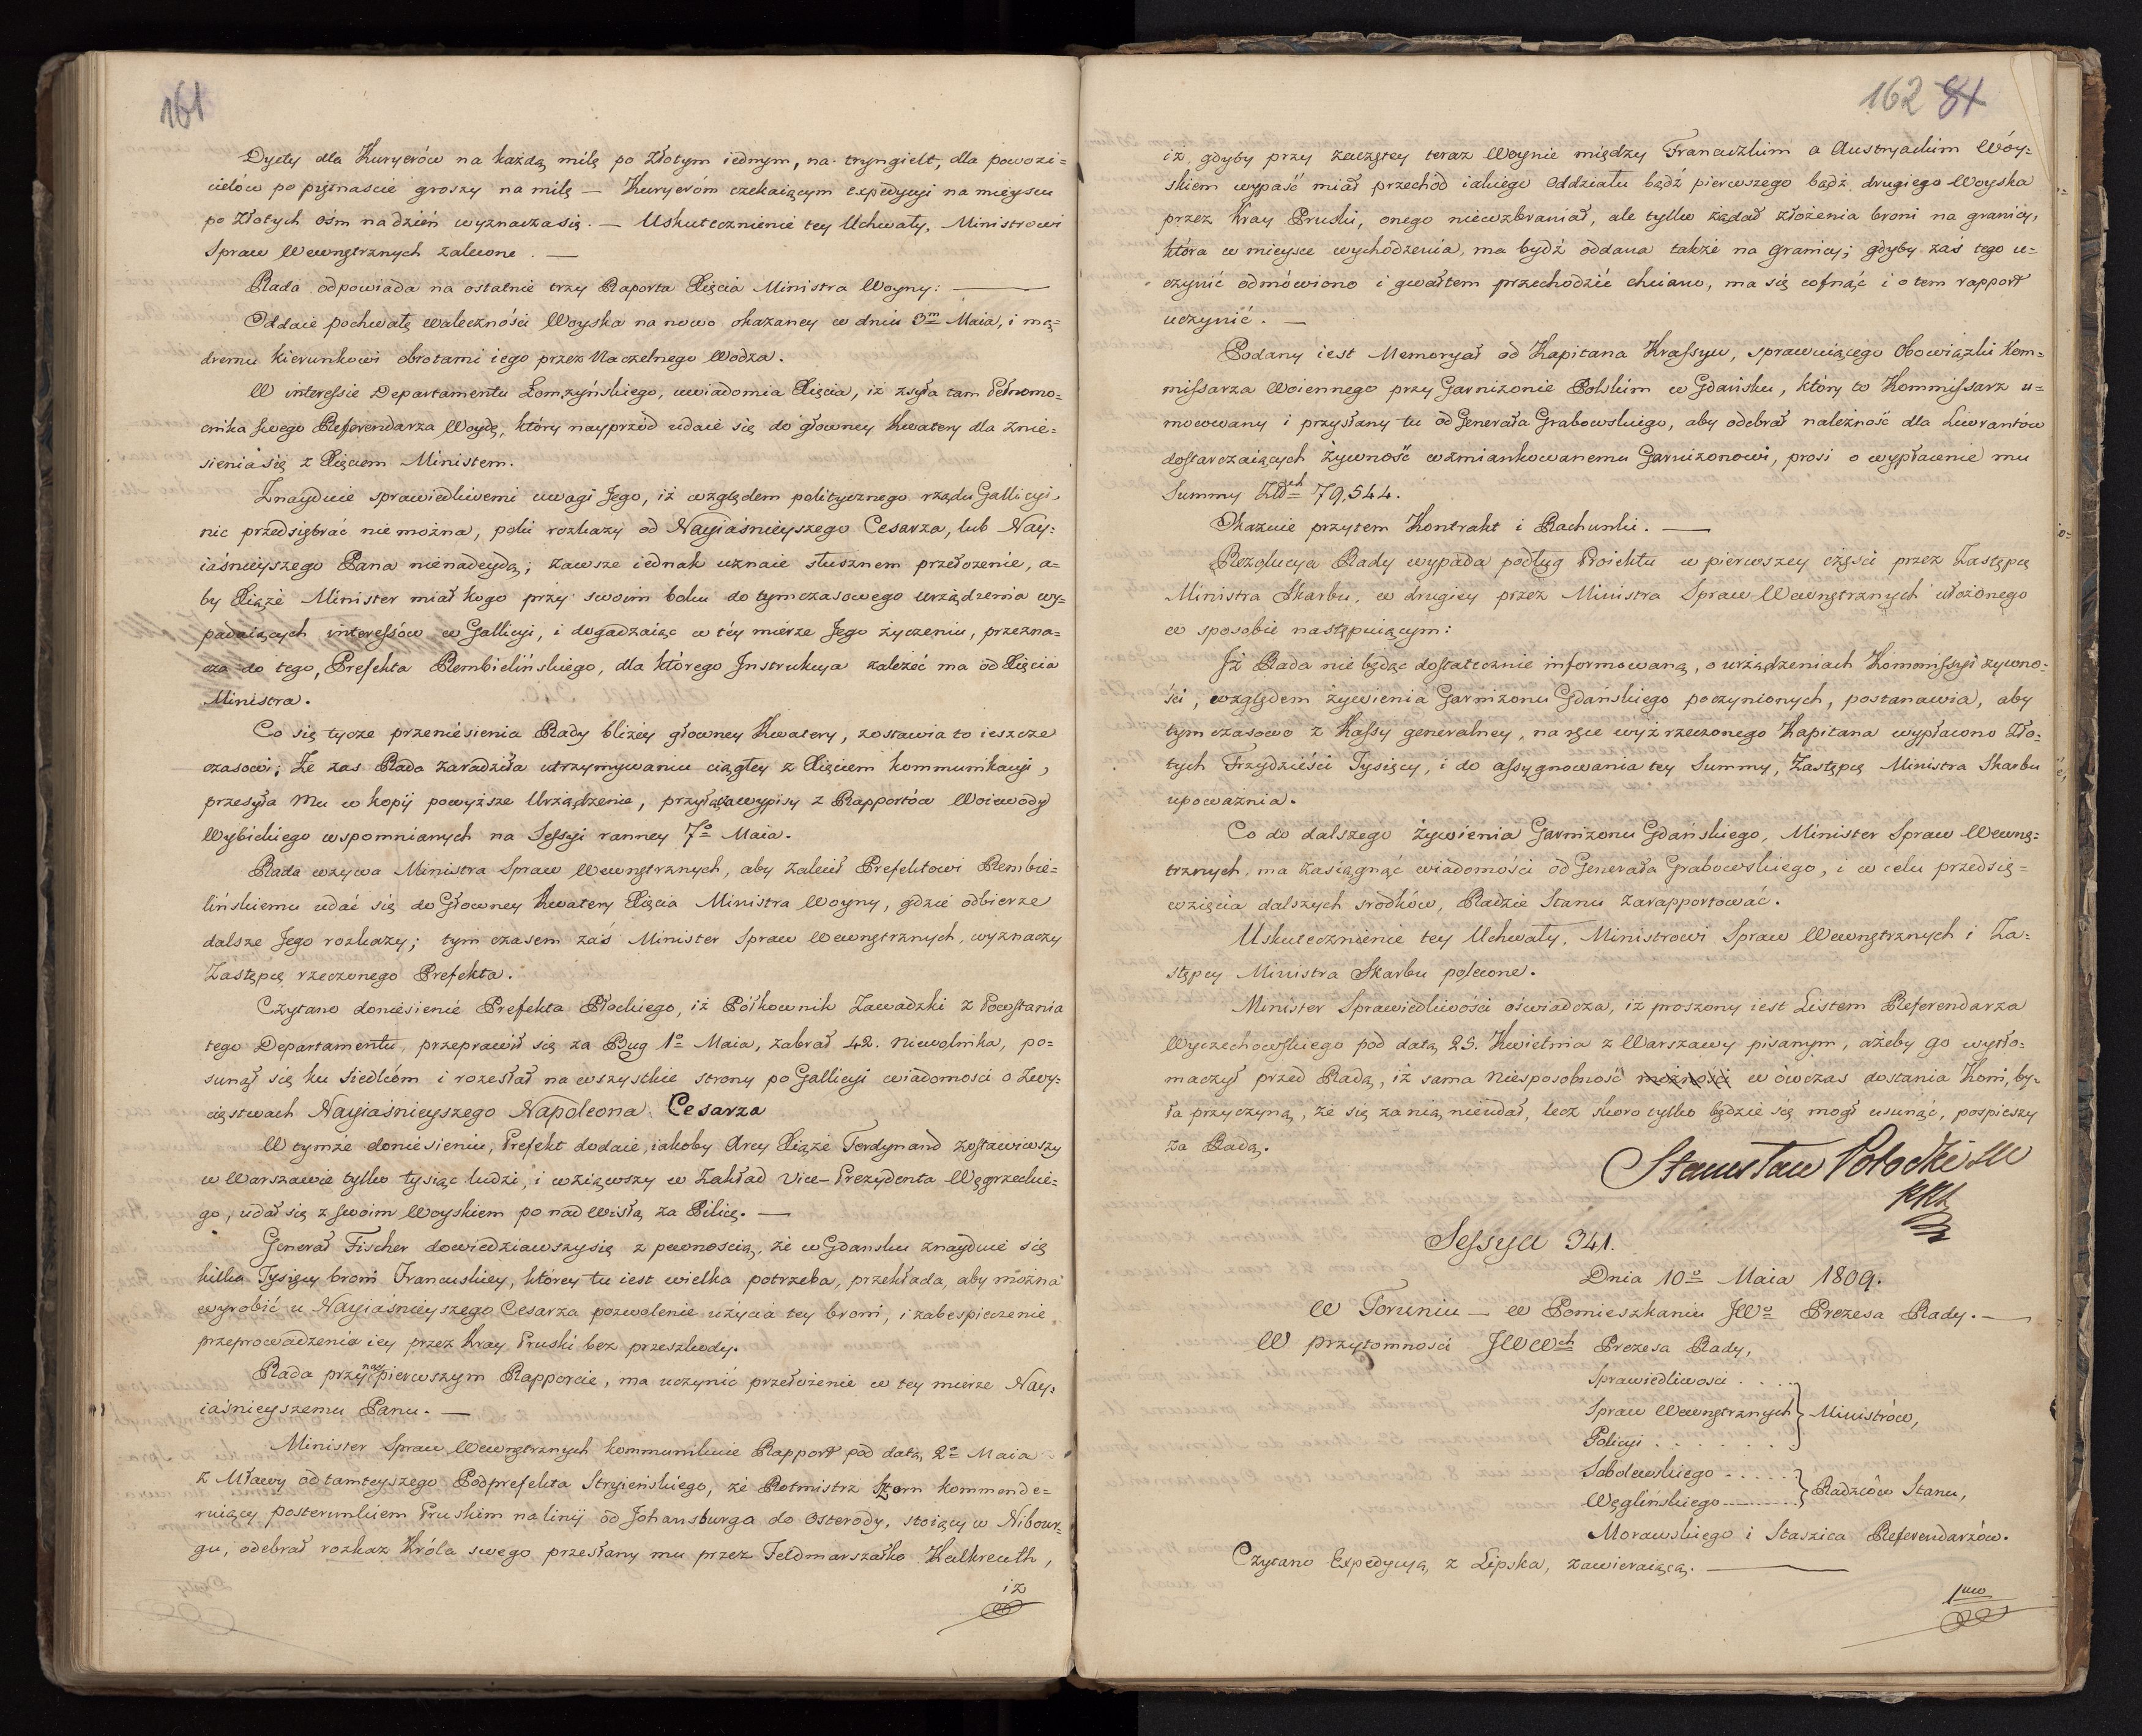 161
Dyety dla Kuryerów na każdą milę po Złotym iednym, na tryngielt, dla powozi=
cielów po piętnaście groszy na milę — Kuryeróm czekaiącym expedycyi na mieyscu
po Złotych ośm na dzień wyznacza się. — Uskutecznienie tey Uchwały, Ministrowi
Spraw Wewnętrznych zalecone. —
Rada odpowiada na ostatnie trzy Raporta Xięcia Ministra Woyny: —
Oddaie pochwałę waleczności Woyska na nowo okazaney w dniu 3m Maia, i mą=
dremu kierunkowi obrotami iego przez Naczelnego Wodza.
W interessie Departamentu Łomżyńskiego, uwiadomia Xięcia, iż zsyła tam Pełnomo=
cnika swego Referendarza Woydę, który nayprzód udaie się do głowney Kwatery dla znie=
sienia się z Xięciem Ministem.
Znayduie sprawiedliwemi uwagi Jego, iż względem politycznego rządu Gallicyi,
nic przedsiębrać nie można, póki rozkazy od Nayiaśnieyszego Cesarza, lub Nay=
iaśnieyszego Pana nienadeydą; zawsze iednak uznaie słusznem przełożenie, a=
by Xiąże Minister miał kogo przy swoim boku do tymczasowego urządzenia wy=
padaiących interessów w Gallicyi, i dogadzaiąc w téy mierze Jego życzeniu, przezna=
cza do tego, Prefekta Rembielińskiego, dla którego Instrukcya zależeć ma od Xięcia
Ministra.
Co się tycze przeniésienia Rady bliżey głowney Kwatery, zostawia to ieszcze
czasowi; Że zas Rada zaradziła utrzymywaniu ciągłey z Xięciem kommunikacyi,
przesyła Mu w kopij powyższe Urządzenie, przyłącza wypisy z Rapportów Woiewody
Wybickiego wspomnianych na Sessyi ranney 7o Maia.
Rada wzywa Ministra Spraw Wewnętrznych, aby zalecił Prefektowi Rembie=
lińskiemu udać się do Głowney Kwatery Xięcia Ministra Woyny, gdzie odbierze
dalsze Jego rozkazy; tym czasem zaś Minister Spraw Wewnętrznych, wyznaczy
Zastępcę rzeczonego Prefekta.
Czytano doniesienie Prefekta Płockiego, iż Półkownik Zawadzki z Powstania
tego Departamentu, przeprawił się za Bug 1o Maia, zabrał 42. niewolnika, po=
sunął się ku Siedlcóm i rozesłał na wszystkie strony po Gallicyi wiadomosci o Zwy=
cięstwach Nayiaśnieyszego Napoleona Cesarza
W tymże doniesieniu, Prefekt dodaie, iakoby Arcy Xiąże Ferdynand zostawiwszy
w Warszawie tylko tysiąc ludzi, i wziąwszy w Zakład Vice-Prezydenta Węgrzeckie=
go, udał się z swoim Woyskiem ponad Wisłą za Pilicę. —
Generał Fischer dowiedziawszy się z pewnością, że w Gdansku znayduie się
kilka Tysięcy broni Francuskiey, którey tu iest wielka potrzeba, przekłada, aby można
wyrobić u Nayiaśnieyszego Cesarza pozwolenie użycia tey broni, i zabespieczenie
przeprowadzenia iey przez Kray Pruski bez przeszkody.
Rada przy naypierwszym Rapporcie, ma uczynić przełożenie w tey mierze Nay=
iaśnieyszemu Panu. —
Minister Spraw Wewnętrznych kommunikuie Rapport pod datą 2o Maia
z Mławy od tamteyszego Podprefekta Stryieńskiego, że Rotmistrz Szorn kommende=
ruiący posterunkiem Pruskim na linij od Johansburga do Osterody, stoiący w Nibour=
gu, odebrał rozkaz Króla swego przesłany mu przez Feldmarszałka Kalkreuth,
iż
162 81
iż, gdyby przy zaczętey teraz Woynie między Francuzkim a Austryackim Wóy=
skiem wypaść miał przechód iakiego Oddziału bądź pierwszego bądź drugiego Woyska
przez Kray Pruski, onego niewzbraniał, ale tylko żądał złożenia broni na granicy,
która w mieysce wychodzenia, ma bydź oddana także na granicy; gdyby zaś tego u=
czynić odmówiono i gwałtem przechodzić chciano, ma się cofnąć i o tem rapport
uczynić. —
Podany iest Memoryał od Kapitana Krassyu, sprawuiącego Obowiązki Kom=
missarza Woiennego przy Garnizonie Polskim w Gdańsku, który to Kommissarz u=
mocowany i przysłany tu od Generała Grabowskiego, aby odebrał należność dla Liwrantów
dostarczaiących żywność wzmiankowanemu Garnizonowi, prosi o wypłacenie mu
Summy Złoch 79,544.
Okazuie przytem Kontrakt i Rachunki. —
Rezolucya Rady wypada podług Proiektu w pierwszey części przez Zastępcę
Ministra Skarbu, w drugiey przez Ministra Spraw Wewnętrznych ułożonego
w sposobie następuiącym:
Iż Rada nie będąc dostatecznie informowaną, o urządzeniach Kommissyi żywno=
ści, względem żywienia Garnizonu Gdańskiego poczynionych, postanawia, aby
tymczasowo z Kassy generalney, na ręce wyż rzeczonego Kapitana wypłacono Zło=
tych Trzydzieści Tysięcy, i do assygnowania tey Summy, Zastępcę Ministra Skarbu
upoważnia.
Co do dalszego żywienia Garnizonu Gdańskiego, Minister Spraw Wewnę=
trznych, ma zasiągnąć wiadomości od Generała Grabowskiego, i w celu przedsię=
wzięcia dalszych srodków, Radzie Stanu zarapportować.
Uskutecznienie tey Uchwały, Ministrowi Spraw Wewnętrznych i Za=
stępcy Ministra Skarbu polecone.
Minister Sprawiedliwości oświadcza, iż proszony iest Listem Referendarza
Wyczechowskiego pod datą 25. Kwietnia z Warszawy pisanym, ażeby go wytło=
maczył przed Radą, iż sama niesposobność możności w ówczas dostania Koni, by=
ła przyczyną, że się za nią nieudał, lecz skoro tylko będzie się mogł usunąć, pospieszy
za Radą.
Stanisław Potocki
Sessya 341.
Dnia 10o Maia 1809.
W Toruniu — w Pomieszkaniu JWo Prezesa Rady. —
W przytomności JWWch Prezesa Rady,
Sprawiedliwosci . . . .
Spraw Wewnętrznych } Ministrów,
Policyi . . . . . . .
Sobolewskiego . . . . .
Węglińskiego } Radzców Stanu,
Morawskiego i Staszica Referendarzów.
Czytano Expedycyą z Lipska, zawieraiącą. —
1mo